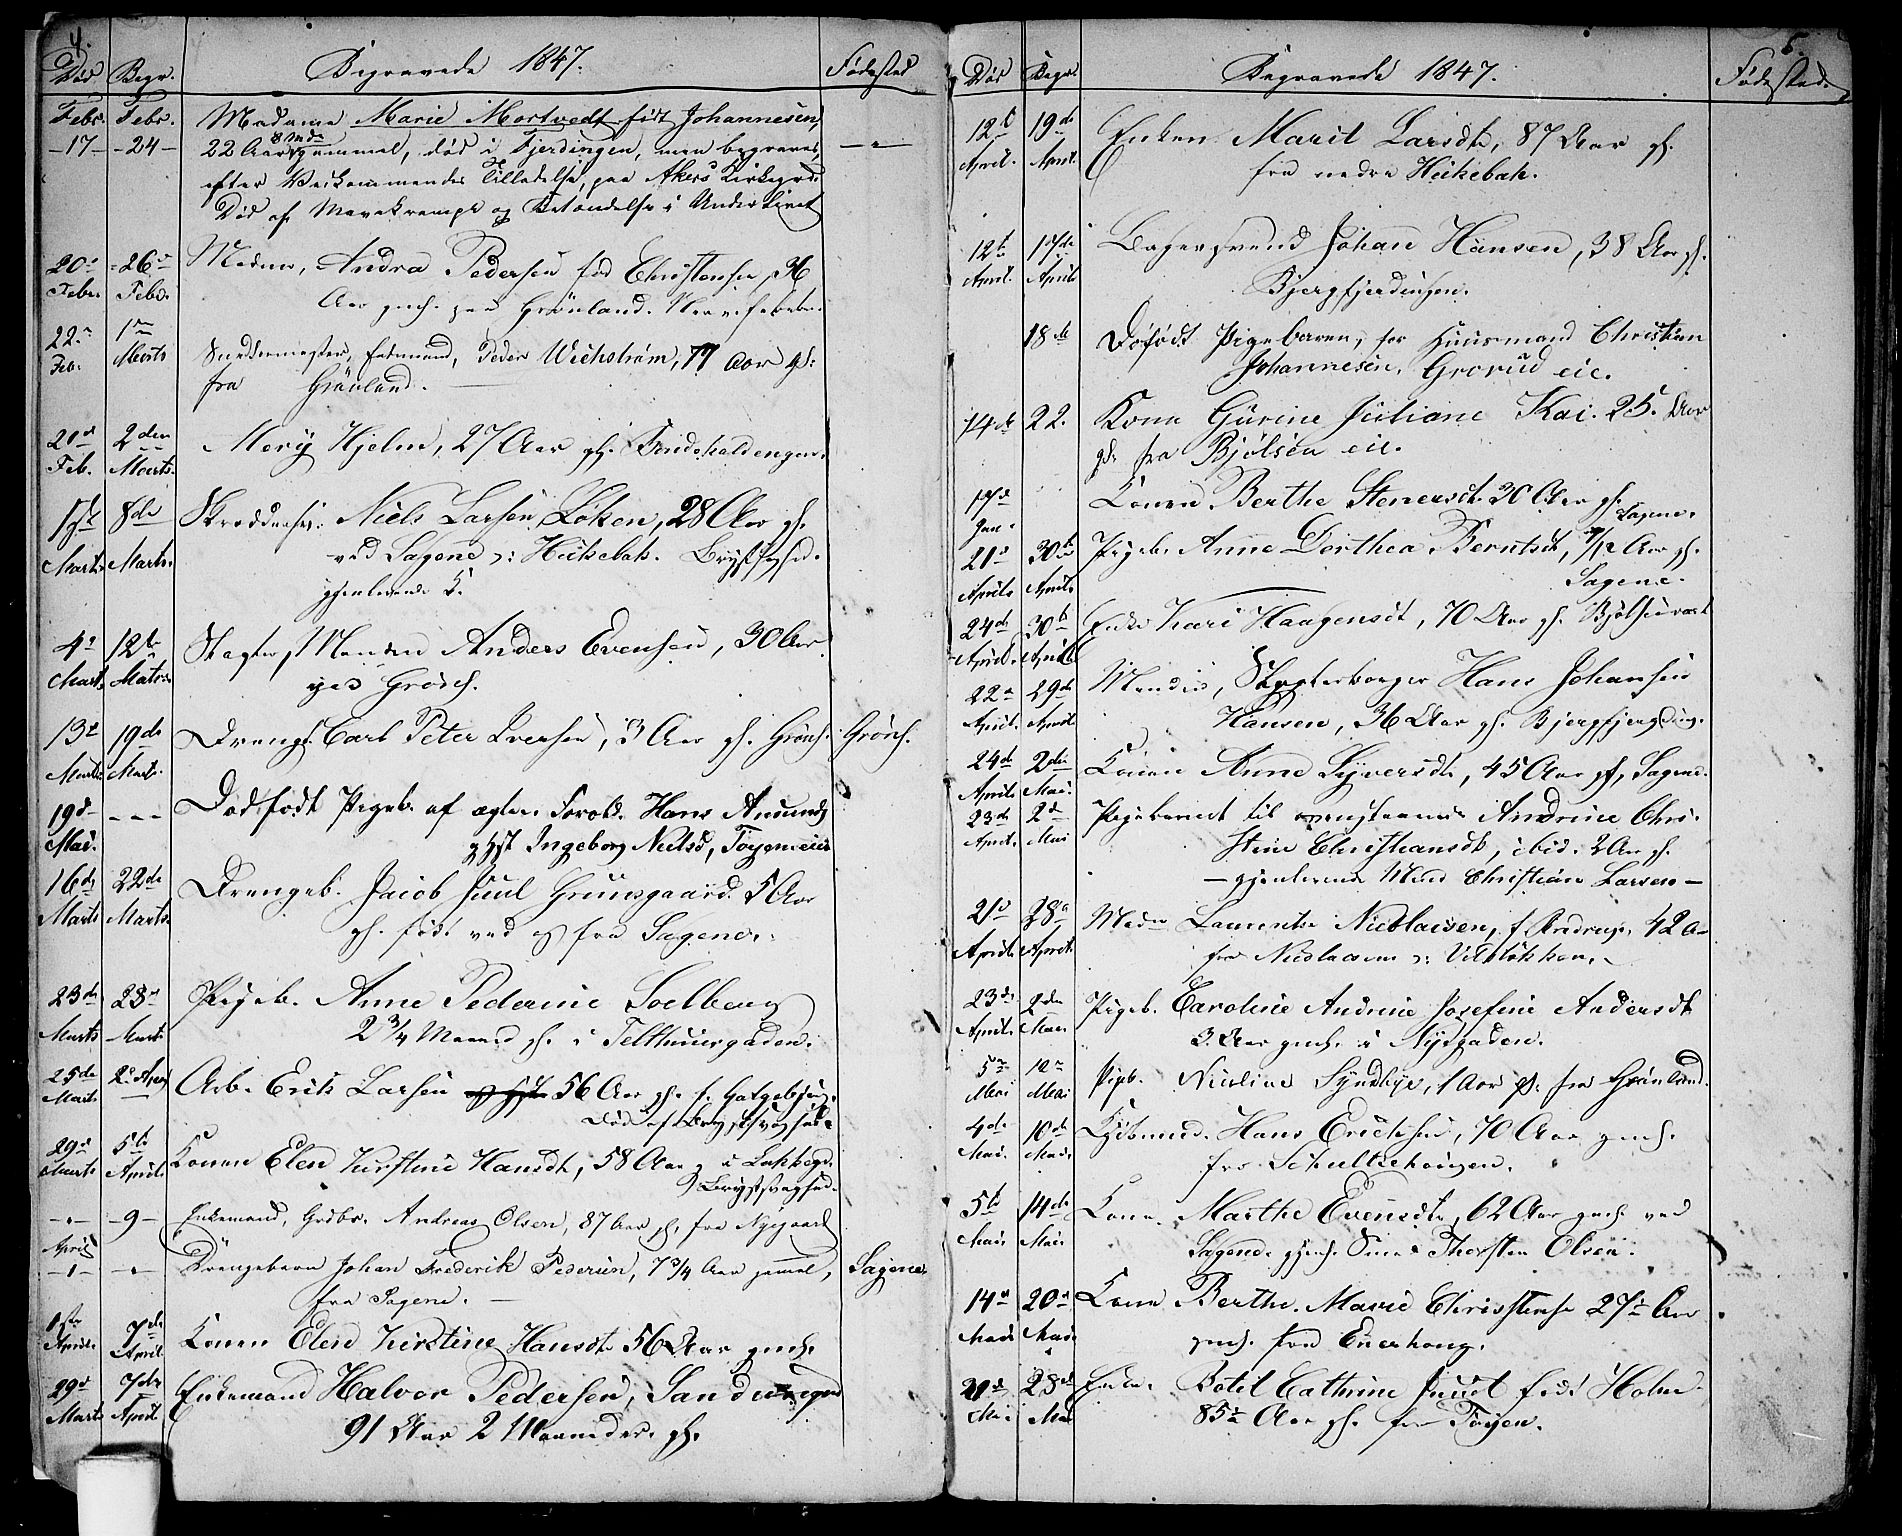 4.
Død Begr. Begravede 1847. Fødested
Febr. Febr. Madame Marie Mortvedt født Johannesen,
-17- -24- 22 Aar 8 Mdr gammel, død i Fjerdingen, men begravet,
efter Vedkommendes Tilladelse, paa Akers Kirkegrd.
Død af Mavekrampe og Betændelse i Underlivet
20de 26de Madme, Andrea Pedersen fød Christensen, 36
Febr. Febr. Aar gmh. paa Grønland. Nervefeber.
22de 1ste
Feb. Marts Enkemand, Peder Wichstrøm, 77 Aar gl.
fra Grønland.
2den Mary Hjelm, 27 Aar gl.
Feb. Marts.
8de Skræddersv. Niels Larsen Løken, 28 Aar gl.
Marts Marts. ved Sagene Hukebak. Brystsyghed.
gjenlevende K.
4de 12te Slagter, Manden Anders Evensen, 30 Aar
Marts Marts ved Grønl.
13de 19de Drengb. Carl Peter Iversen, 3 Aar gl. Grønl. Grønl.
Marts Marts
19de --- Dødfødt Pigeb. af ægte Foreld. Hans Amunds
Mai. g Hst Ingeborg Nielsd, Tøyeneie
16de 22de Drengeb. Jacob Juul Gruusgaard 5 Aar
Marts Marts gl. født ved og fra Sagene.
23de 28de Pigeb. Anne Pederine Soelberg
Marts Marts 2 3/4 Maaned gl. i Telthuusgaden.
25de 2de April Arb. Erik Larsen 56 Aar gl. f.
Marts Død af Brystsyghed
29de 5te Konen Elen Kirstine Hansdt, 58 Aar, i Lakkegd.
Marts April Brystsyghed.
-"- -9- Enkemand, Grdbr. Andreas Olsen, 87 Aar gl. fra Nygaard
April
-1- -"- Drengebarn Johan Frederik Pedersen, 7 3/4 Aar gammel, Sagene
fra Sagene.
1ste 7de Konen Elen Kirstine Hansdt 56 Aar gmh.
April April
29de 7de Enkemand Halvor Pedersen,
Marts April 91 Aar 2 Maaneder gl.
5.
Død Begr. Begravede 1847. Fødested
12te 19de Enken Marit Larsdt, 87 Aar gl.
April. April. fra nedre Hukebak.
12te 17de Bagersvend Johan Hansen, 38 Aar gl.
April. April Bjergfjerdingen.
18de Døfødt Pigebarn, for Huusmand Christian
Johannesen, Grorud eie.
14de 22. Kone Gurine Juliane Kai. 25. Aar
gl. fra Bjølsen eie.
17de Konen Berthe Stenersdt. 30 Aar gl.
Jan. Sagene.
21de 30te Pigeb. Anne Dorthea Berntsdt, 7/12 Aar gl.
April April Sagene.
24de 30te Enke Kari Haagensdt, 70 Aar gl.
April. April
22de 29de Manden, Skipper Hans Johansen
April. April Hansen, 36 Aar gl. Bjergfjerding.
24de 2den Konen Anne Syversdt, 45 Aar gl, Sagene.
April Mai.
23de 2de Pigebarnet til Andrine Chri-
April. Mai stine Christiansdt, ibid. 2 Aar gl.
- gjenlevende Mand Christian Larsen -
21de 28de Madme Laurentze Nicolaisen, 42 Aar
April April. fra Nicolaisens
23de 2den Pigeb. Caroline Andrine Josefine Andersdt
April. Mai 3 Aar gmh. i Nygaden.
5te 10de Pigb. Nicoline Syndbye, 1 Aar gl. fra Grønland.
Mai Mai
4de 10de Kjøbmand. Hans Erichsen, 70 Aar gmh.
Mai. Mai. fra Schultzehougen.
5te 14de Kone. Marthe Evensdt, 62 Aar gmh ved
Mai. Mai. Sagene. Thorsten Olsen.
14de 20de Kone Berthe Marie Christense 27 Aar
Mai Mai gmh. fra Enerhoug.
21de 28de Enke. Botil Cathrine Juul født Holm
Mai Mai 85 Aar gl. fra Tøyen.